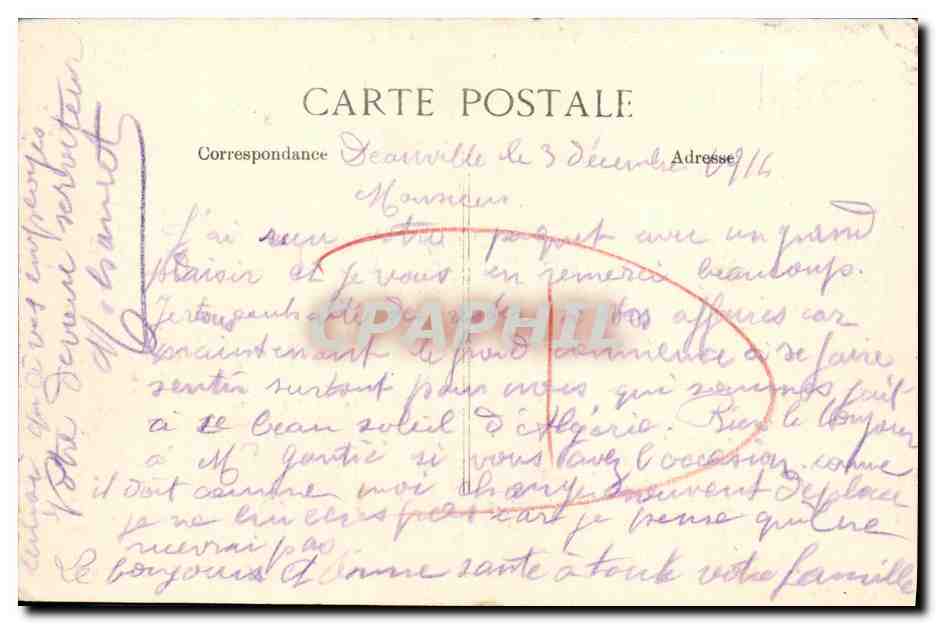 CARTE POSTALE
Correspondance
Adresse
Deauville le 3 décembre 1914
Monsieur
J'ai reçu votre paquet avec un grand
plaisir et je vous en remerci beaucoup.
Je vous affaires car
maintenant le froid commence a se faire
sentir surtout pour nous qui sommes fait
à ce beau soleil d'Algérie. Bien le bonjour
a Mr Gantié si vous avez l'occasion comme
il doit comme moi change souvent deplace
je ne lui ecris pas car je pense qu'il ne
recevrai pas
Le bonjour et bonne santé a toute votre famille
ainsi qu'a vos employés
Votre devoué serviteur
CPAPHIL